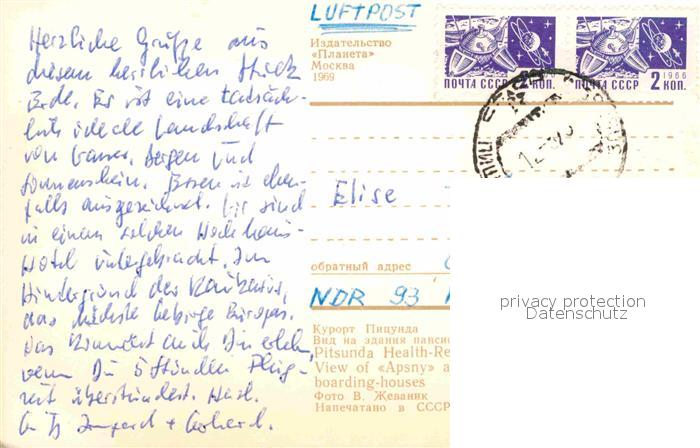 Herzliche Grüße aus
diesem herrlichen Stück
Erde. Es ist eine tatsäch-
lich ideale Landschaft
von Wasser, Bergen und
Sonnenschein. Essen ist eben-
falls ausgezeichnet. Wir sind
in einem solchen Hochhaus-
Hotel untergebracht. Im
Hintergrund der Kaukasus,
das höchste Gebirge Europas.
Das könntest auch Du erleben,
wenn Du 5 Stunden Flug-
zeit überstündest. Herzl.
Irmgard + Gerhard.
LUFTPOST
Издательство
«Планета»
Москва
1969
ПОЧТА СССР 2 КОП.
1966
ПОЧТА СССР 2 КОП.
Elise
обратный адрес
NDR 93
privacy protection
Datenschutz
Курорт Пицунда
Вид на здания
Pitsunda
View of «Apsny»
boarding-houses
Фото В. Жеваник
Напечатано в СССР